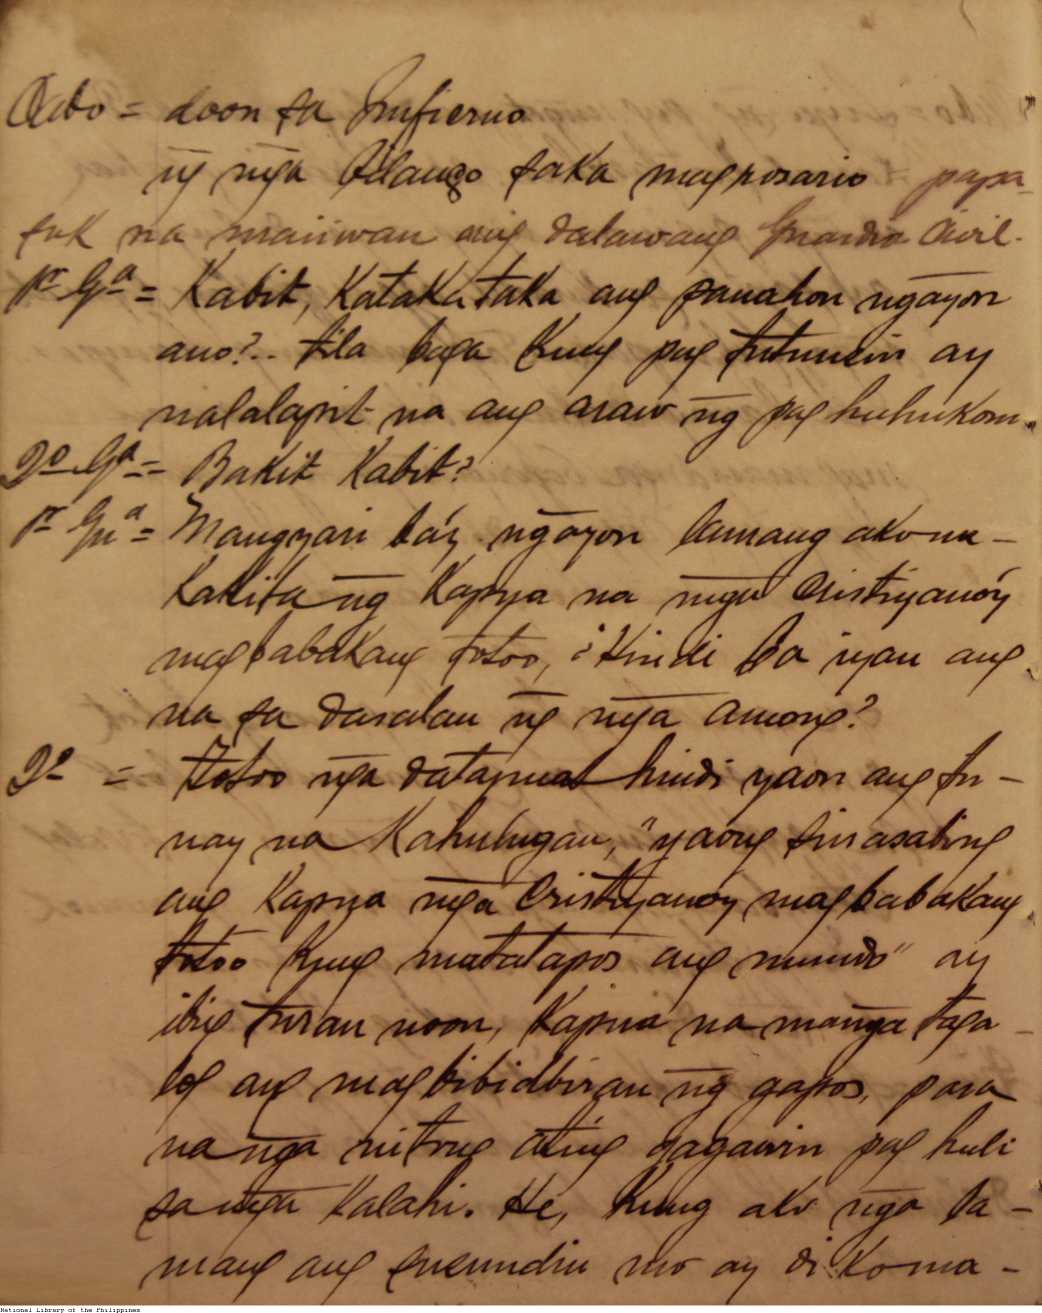 Cabo = doon sa Ynfierno
ng̃ mg̃a bilango saka magrosario papa-
suk na maiiwan ang dalawang Guardia Civil.
1r Ga = Kabit, KatakaTaka ang panahon ng̃ayon
ano?.. tila baga kung pag tutunein ay
nalalapit na ang araw ng̃ pag huhukom.
2o Ga = Bakit Kabit?
1r Gua = Mangyari ba'y ng̃ayon lamang ako na-
kakita ng̃ Kapua na mg̃a Cristiyano'y
magbabakang totoo, ¿Hindi ba iyan ang
na sa dasalan ng̃ mg̃a among?
2o = Totoo ng̃a datapua't hindi yaon ang tu-
nay na Kahulugan, "yaong sinasabing
ang Kapua mg̃a Cristiyanoy magbabakang
totoo kung matatapos ang mundo" ay
ibig turan noon, Kapua na mang̃a taga-
log ang magbibidbiran ng̃ gapos, para
na ng̃a nitong ating gagawin pag huli
sa mg̃a Kalahi. He, kung ako ng̃a la-
mang ang susundin mo ay di Ko ma-
National Library of the Philippines